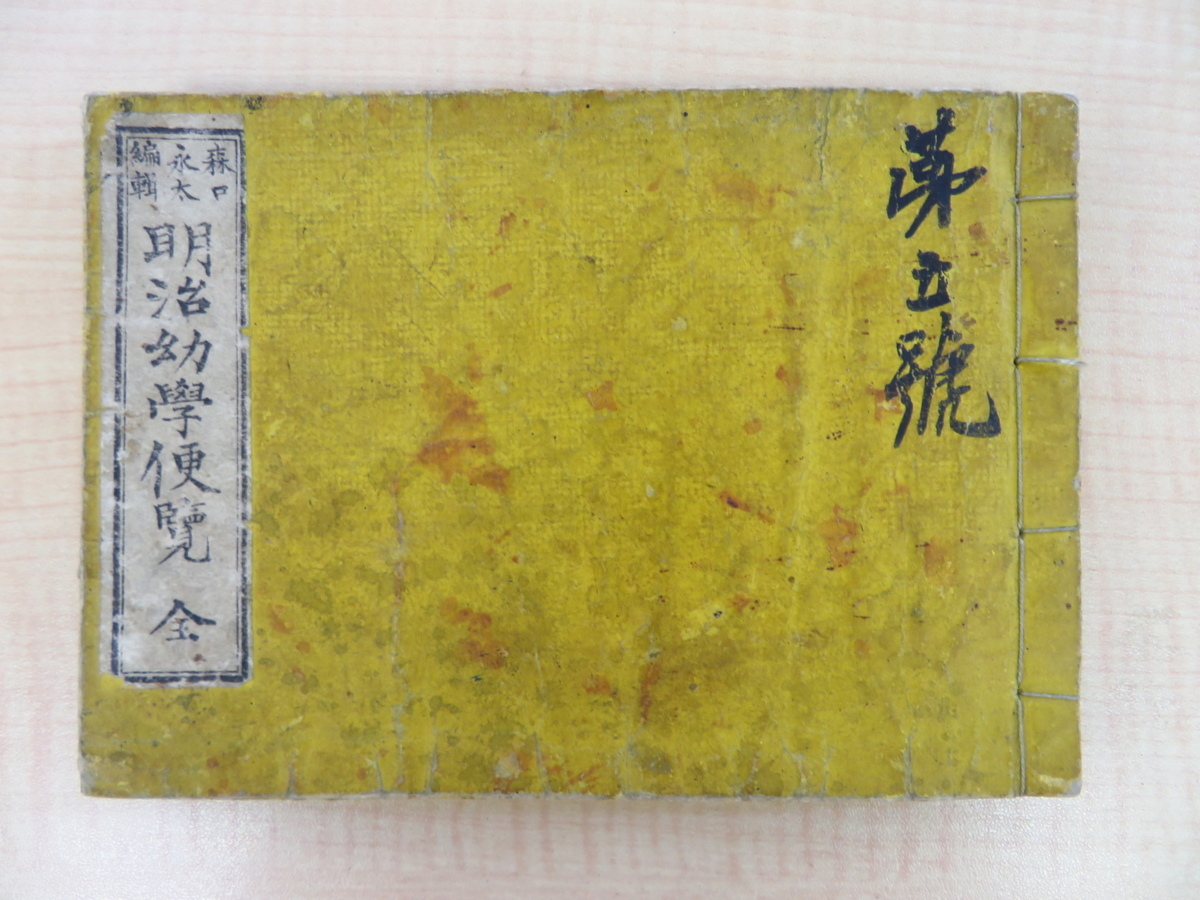 第五號
森口
永太
編輯
明治幼學便覽 全